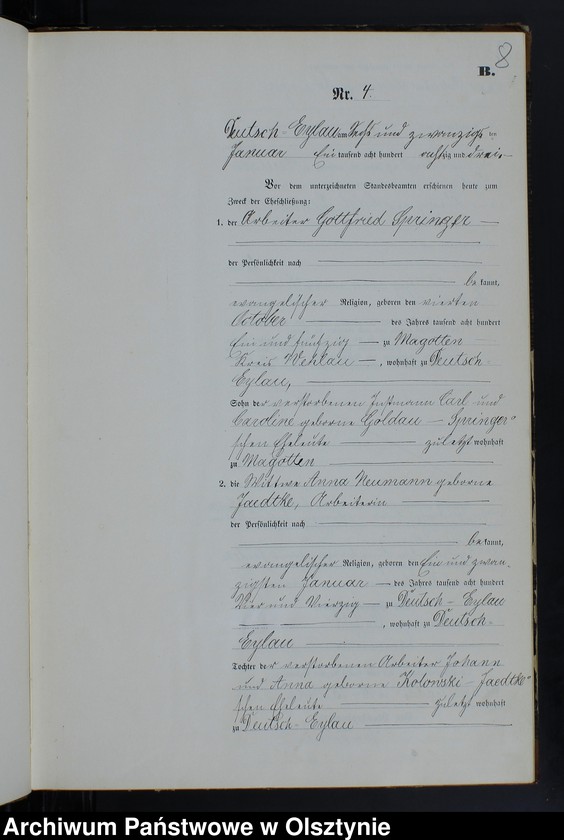 8
B.
Nr. 4.
Deutsch-Eylau am Sechs und zwanzigsten
Januar Ein tausend acht hundert achtzig und drei
Vor dem unterzeichneten Standesbeamten erschienen heute zum
Zweck der Eheschließung:
1. der Arbeiter Gottfried Springer
der Persönlichkeit nach
be kannt,
evangelischer Religion, geboren den vierten
October des Jahres tausend acht hundert
Ein und fünfzig zu Magotten
Kreis Wehlau, wohnhaft zu Deutsch-
Eylau,
Sohn der verstorbenen Instmann Carl und
Caroline geborne Goldau - Springer'
schen Eheleute zuletzt wohnhaft
zu Magotten
2. die Wittwe Anna Neumann geborne
Jaedtke, Arbeiterin
der Persönlichkeit nach
be kannt,
evangelischer Religion, geboren den Ein und zwan-
zigsten Januar des Jahres tausend acht hundert
Vier und Vierzig zu Deutsch-Eylau
, wohnhaft zu Deutsch-
Eylau
Tochter der verstorbenen Arbeiter Johann
und Anna geborne Kolonski - Jaedtke'
schen Eheleute zuletzt wohnhaft
zu Deutsch-Eylau
Archiwum Państwowe w Olsztynie